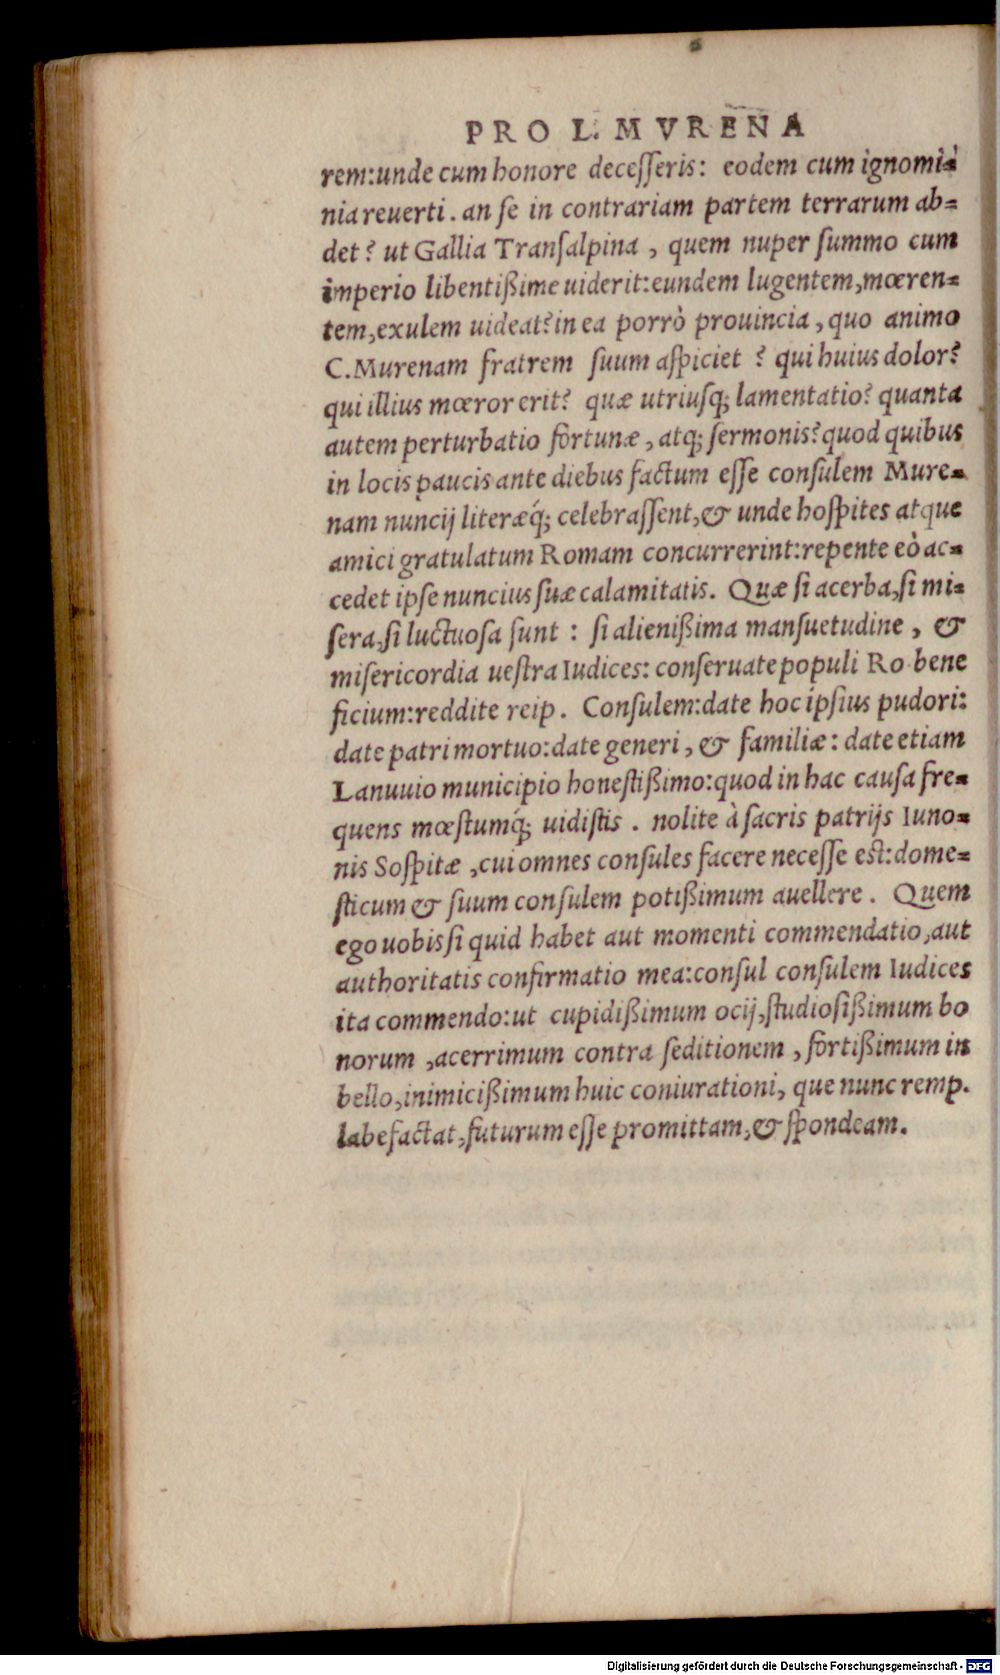 PRO L. MVRENA
rem:unde cum honore decesseris: eodem cum ignomi=
nia reuerti. an se in contrariam partem terrarum ab=
det? ut Gallia Transalpina, quem nuper summo cum
imperio libentißime uiderit:eundem lugentem,mœren=
tem,exulem uideat?in ea porrò prouincia, quo animo
C.Murenam fratrem suum aspiciet? qui huius dolor?
qui illius mœror erit? quæ utriusq; lamentatio? quanta
autem perturbatio fortunæ, atq; sermonis?quod quibus
in locis paucis ante diebus factum esse consulem Mure=
nam nuncij literæq́; celebrassent,& unde hospites atque
amici gratulatum Romam concurrerint:repente eò ac=
cedet ipse nuncius suæ calamitatis. Quæ si acerba,si mi=
sera,si luctuosa sunt: si alienißima mansuetudine, &
misericordia uestra Iudices: conseruate populi Ro bene
ficium:reddite reip. Consulem:date hoc ipsius pudori:
date patri mortuo:date generi, & familiæ: date etiam
Lanuuio municipio honestißimo:quod in hac causa fre=
quens mœstumq́; uidistis. nolite à sacris patrijs Iuno=
nis Sospitæ, cui omnes consules facere necesse est:dome=
sticum & suum consulem potißimum auellere. Quem
ego uobis si quid habet aut momenti commendatio,aut
authoritatis confirmatio mea:consul consulem Iudices
ita commendo:ut cupidißimum ocij,studiosißimum bo
norum, acerrimum contra seditionem, fortißimum in
bello,inimicißimum huic coniurationi, que nunc remp.
labefactat,futurum esse promittam,& spondeam.
Digitalisierung gefördert durch die Deutsche Forschungsgemeinschaft - DFG